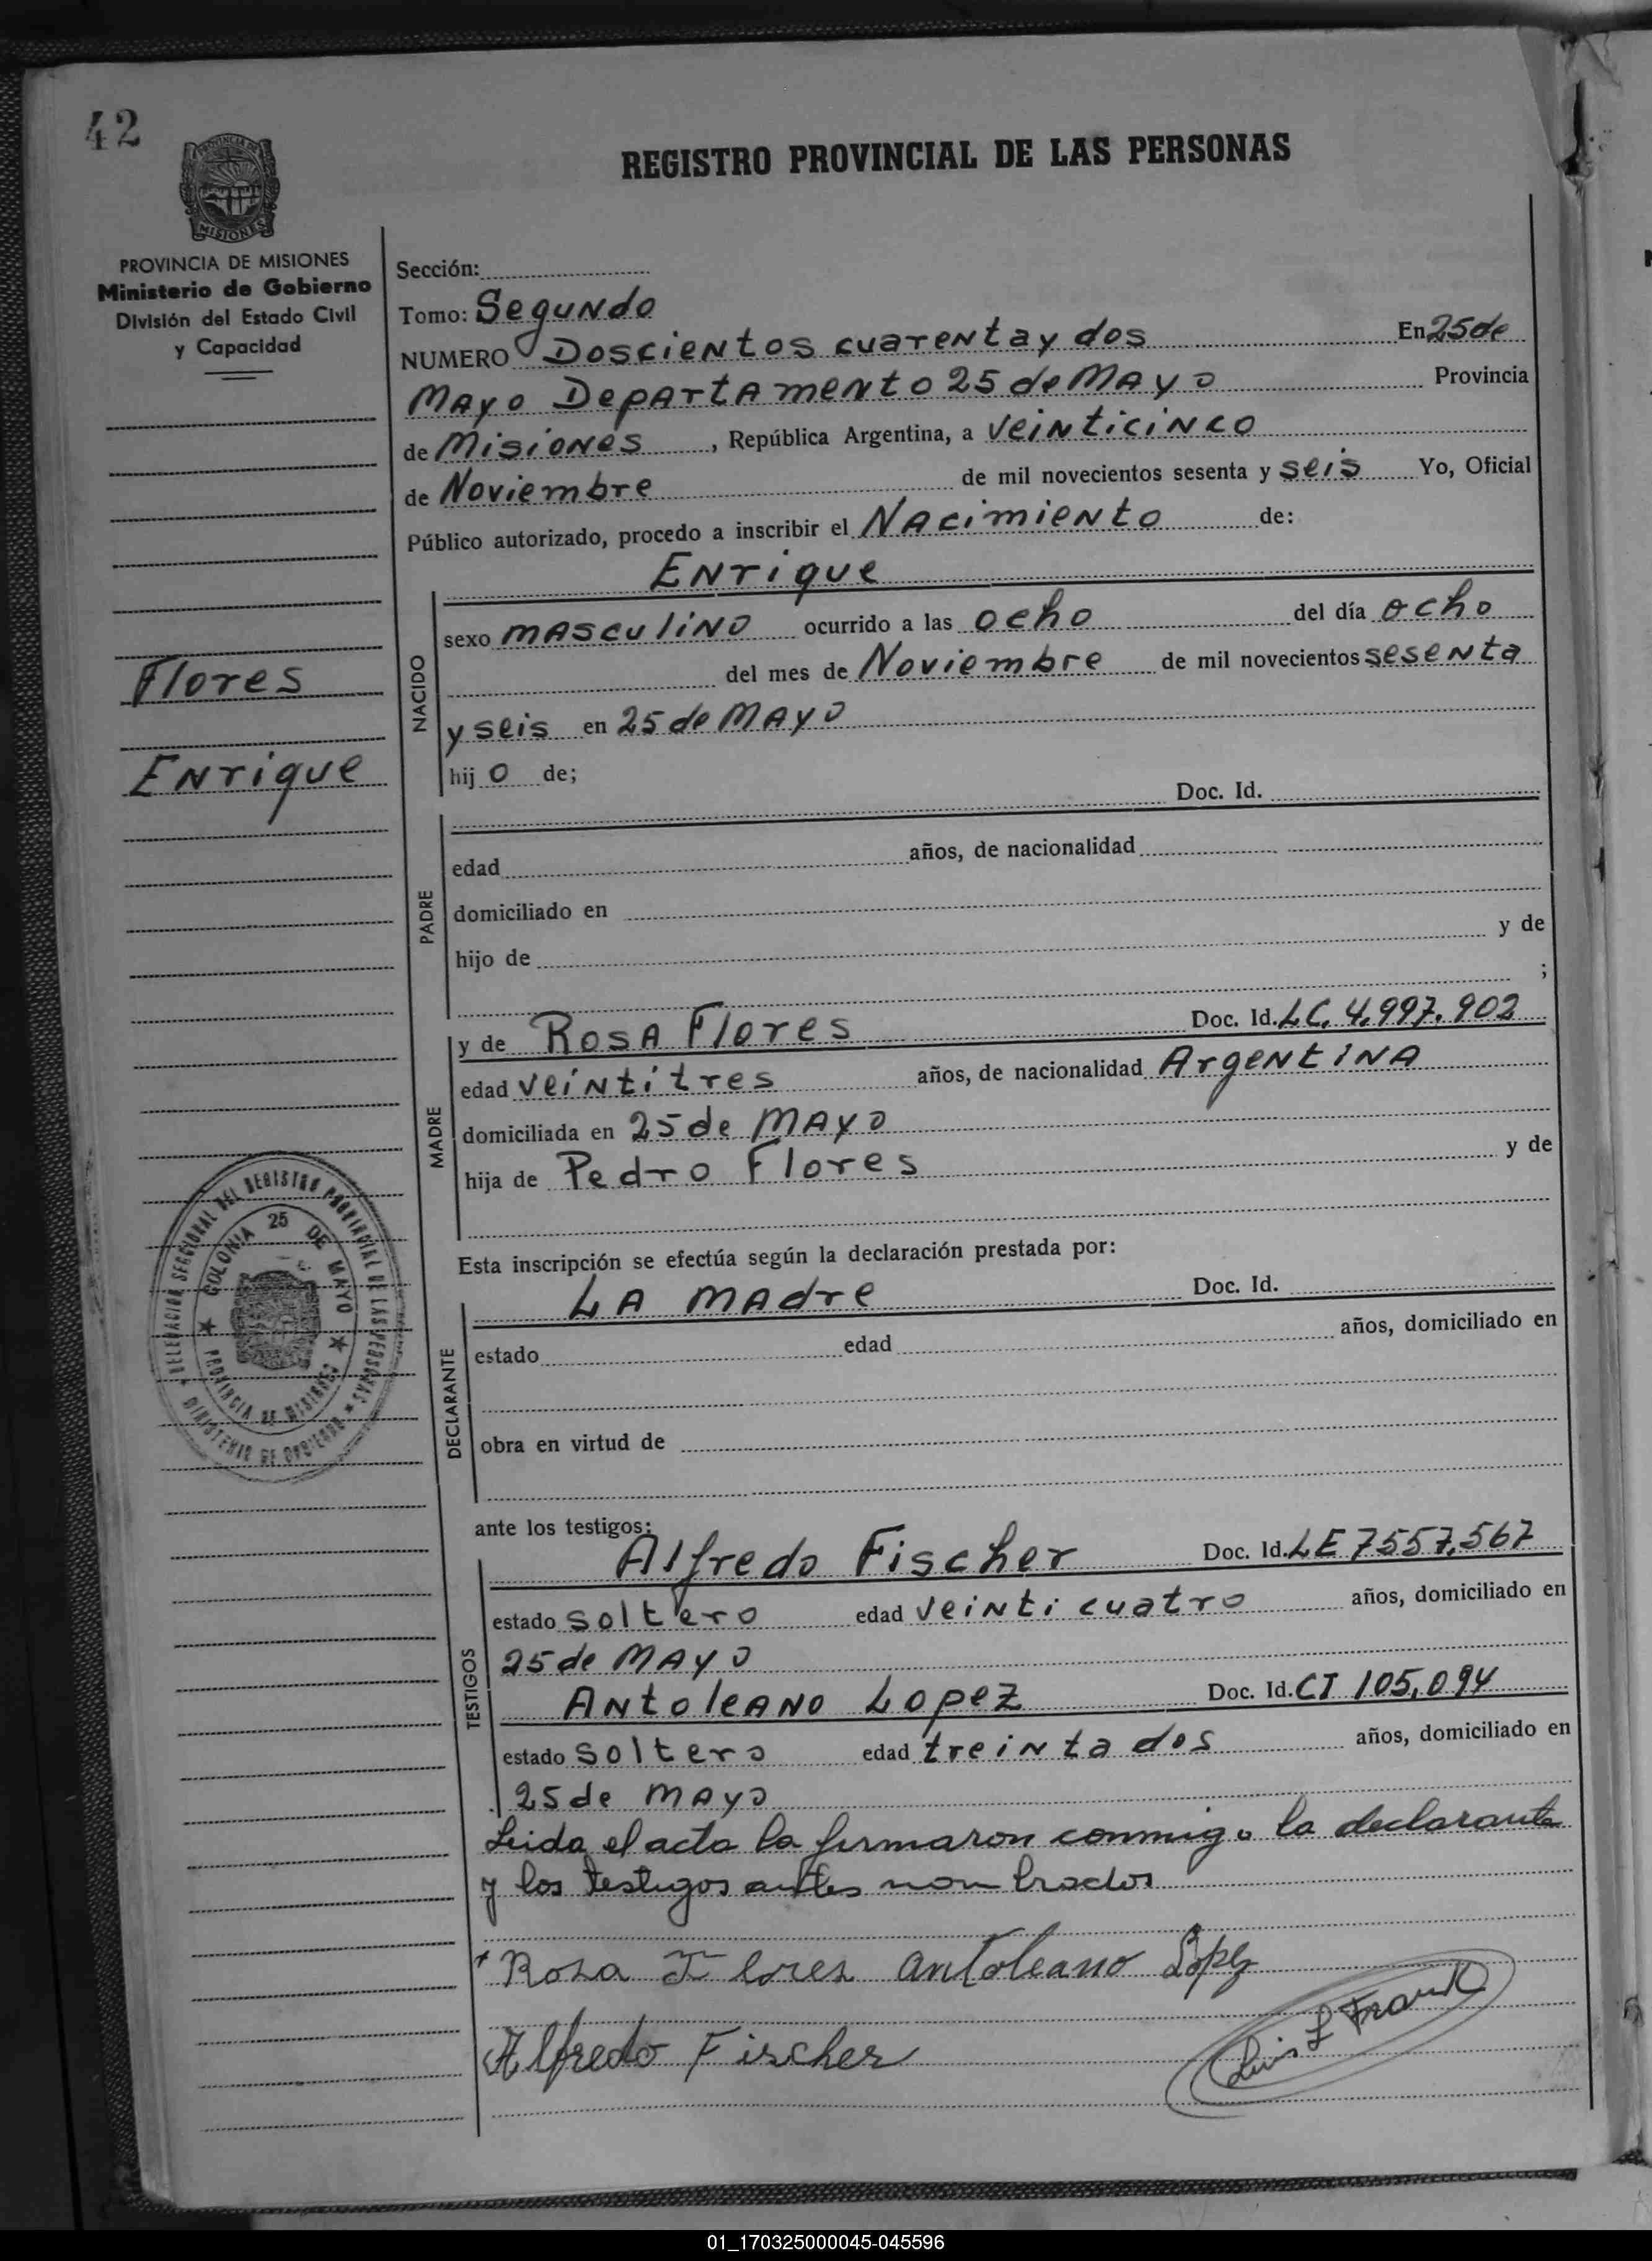 42
REGISTRO PROVINCIAL DE LAS PERSONAS
PROVINCIA DE MISIONES
Ministerio de Gobierno
División del Estado Civil
y Capacidad
Sección:
Tomo: Segundo
NUMERO Doscientos cuarenta y dos En 25 de
Mayo Departamento 25 de Mayo Provincia
de Misiones, República Argentina, a veinticinco
de Noviembre de mil novecientos sesenta y seis Yo, Oficial
Público autorizado, procedo a inscribir el Nacimiento de:
Enrique
NACIDO
sexo masculino ocurrido a las ocho del día ocho
del mes de Noviembre de mil novecientos sesenta
y seis en 25 de Mayo
hijo de;
Flores
Enrique
PADRE
Doc. Id.
edad años, de nacionalidad
domiciliado en
hijo de y de
;
MADRE
y de Rosa Flores Doc. Id. LC. 4.997.902
edad veintitres años, de nacionalidad Argentina
domiciliada en 25 de Mayo
hija de Pedro Flores y de
Esta inscripción se efectúa según la declaración prestada por:
DECLARANTE
La madre Doc. Id.
estado edad años, domiciliado en
obra en virtud de
DELEGACION SECCIONAL DEL REGISTRO PROVINCIAL DE LAS PERSONAS
MINISTERIO DE GOBIERNO
COLONIA 25 DE MAYO
PROVINCIA DE MISIONES
ante los testigos:
TESTIGOS
Alfredo Fischer Doc. Id. LE 7557.567
estado soltero edad veinti cuatro años, domiciliado en
25 de Mayo
Antoleano Lopez Doc. Id. CI 105.094
estado soltero edad treinta dos años, domiciliado en
25 de Mayo
Leida el acta la firmaron conmigo la declarante
y los testigos antes nombrados
Rosa Flores Antoleano López
Alfredo Fischer
Luis L Frank
01_170325000045-045596